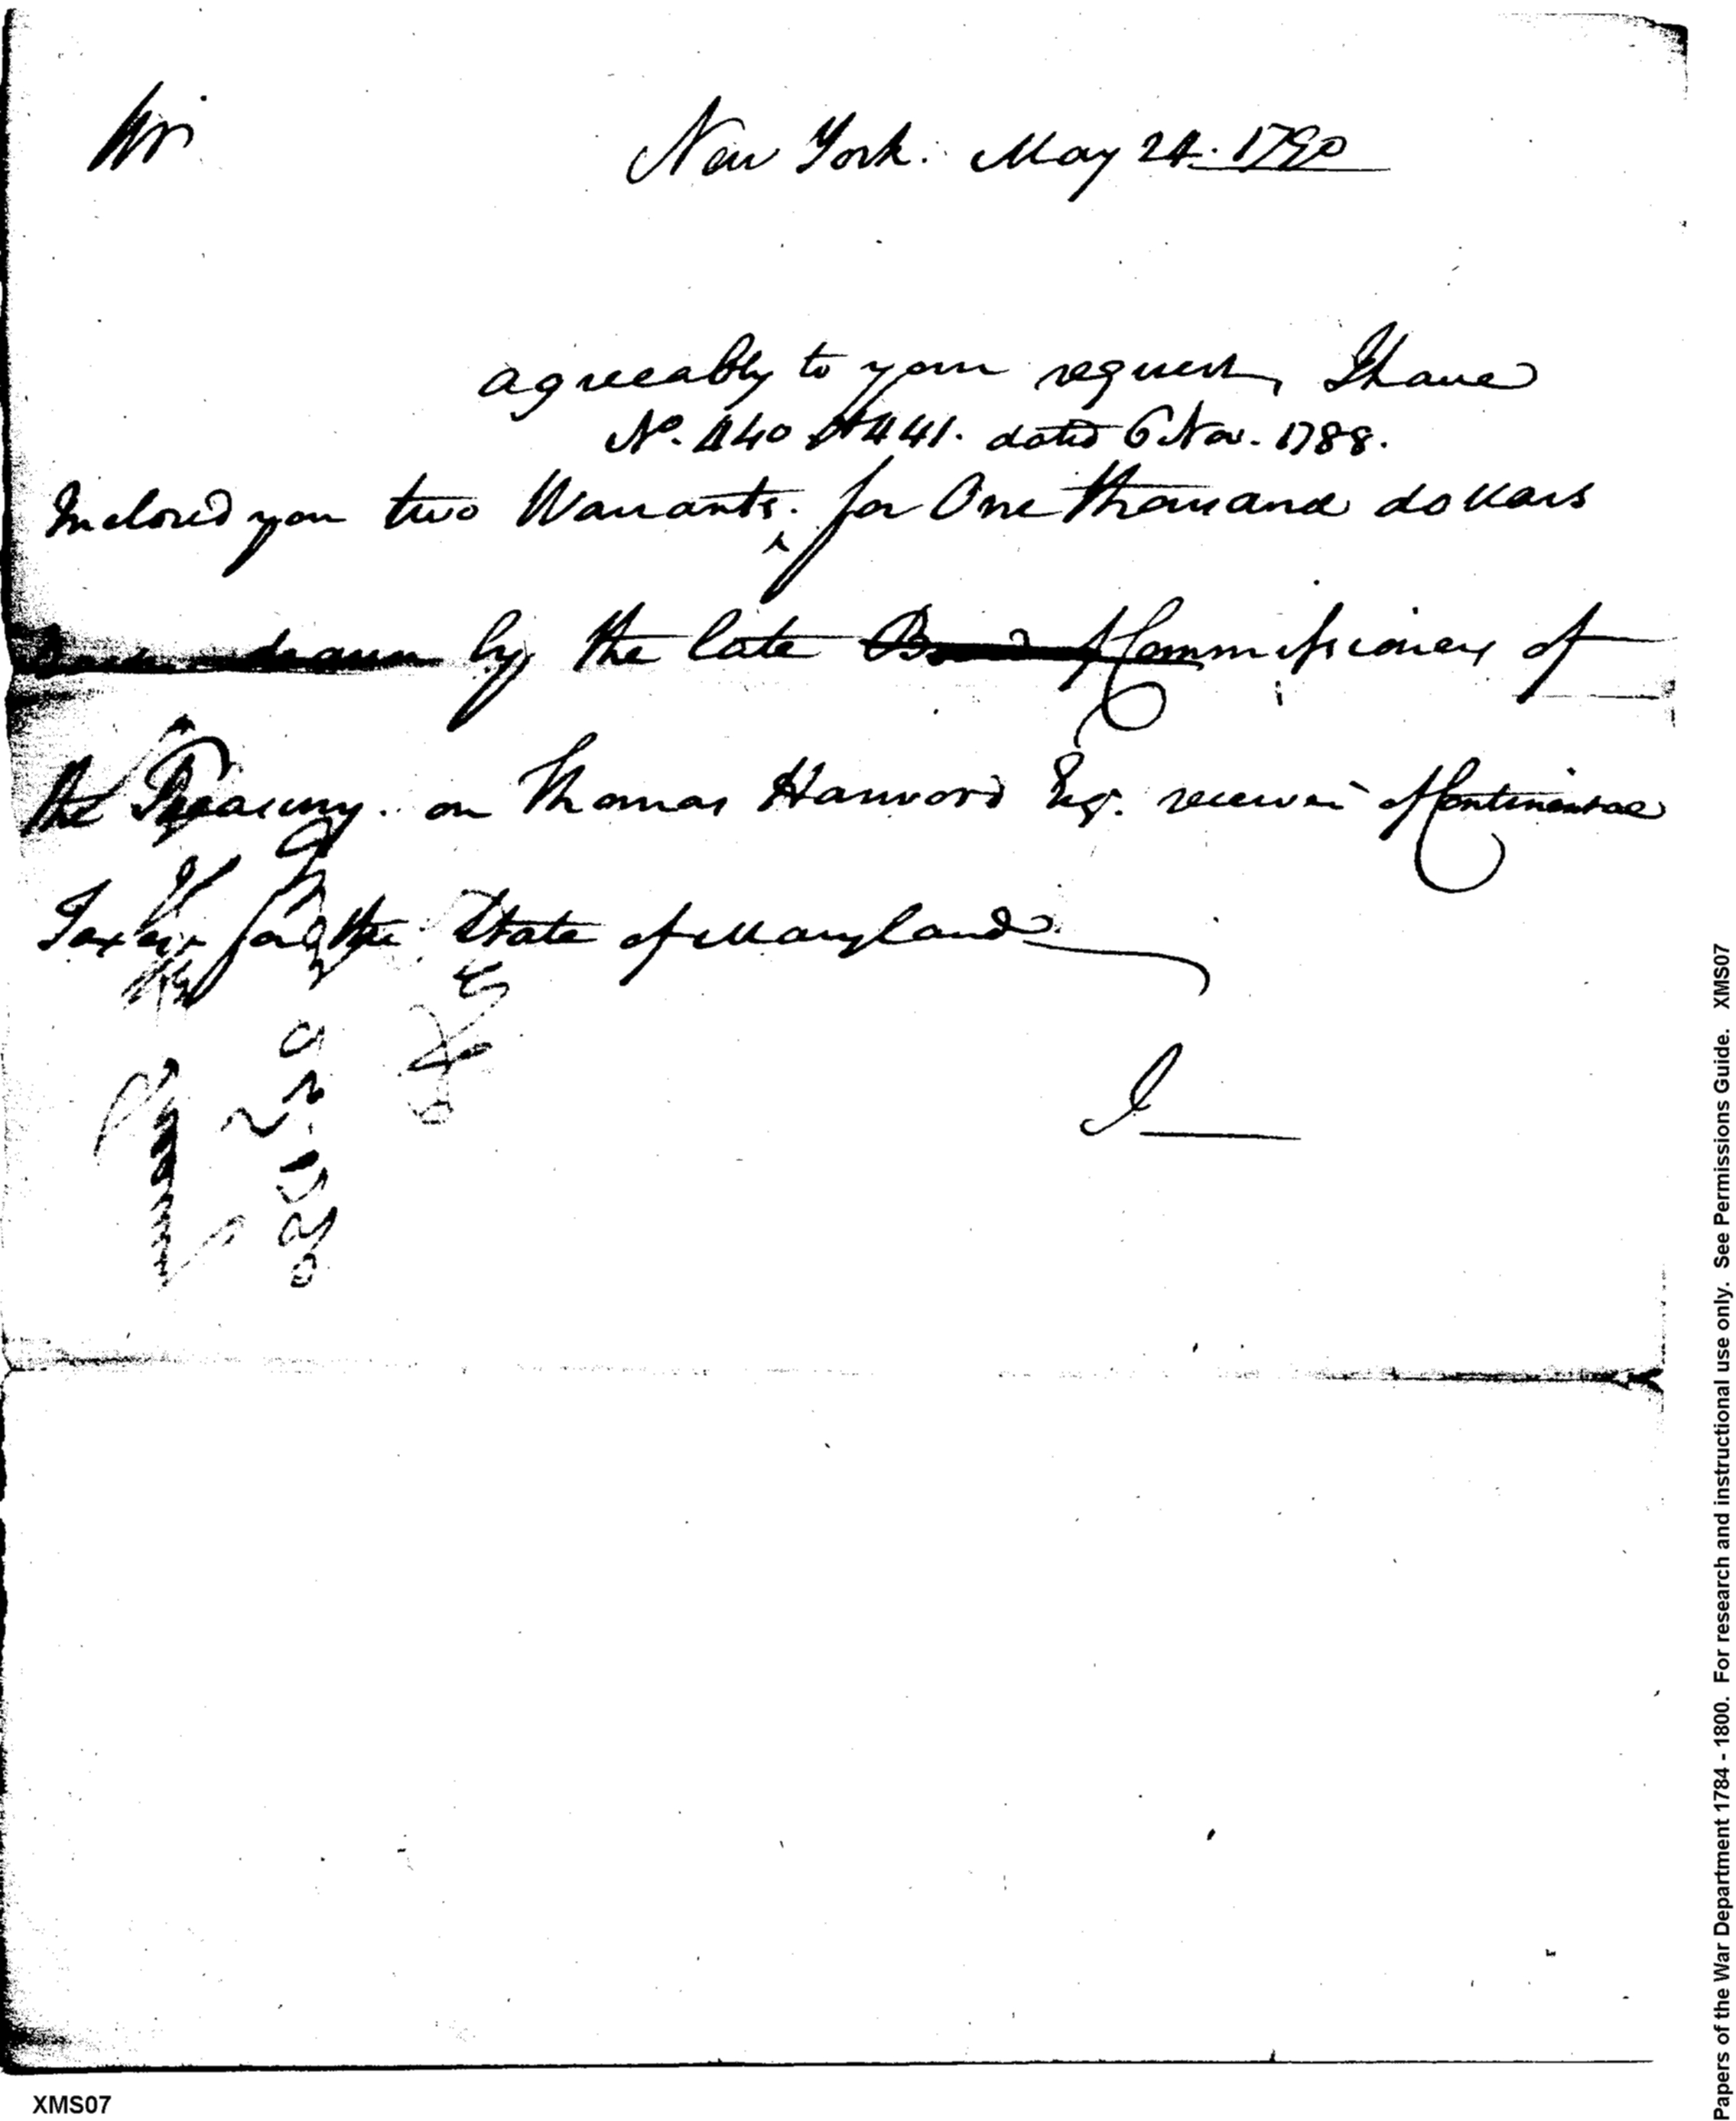 Sir
New York. May 24. 1790
agreeably to your request, I have
No. 440 & 441. dated 6 Nov. 1788.
Inclosed you two Warrants. for One thousand dollars
drawn by the late Board of Commissioners of
the Treasury. on Thomas Harwood Esqr. receiver of Continental
Taxes for the State of Maryland.
I
XMS07
Papers of the War Department 1784 - 1800. For research and instructional use only. See Permissions Guide. XMS07